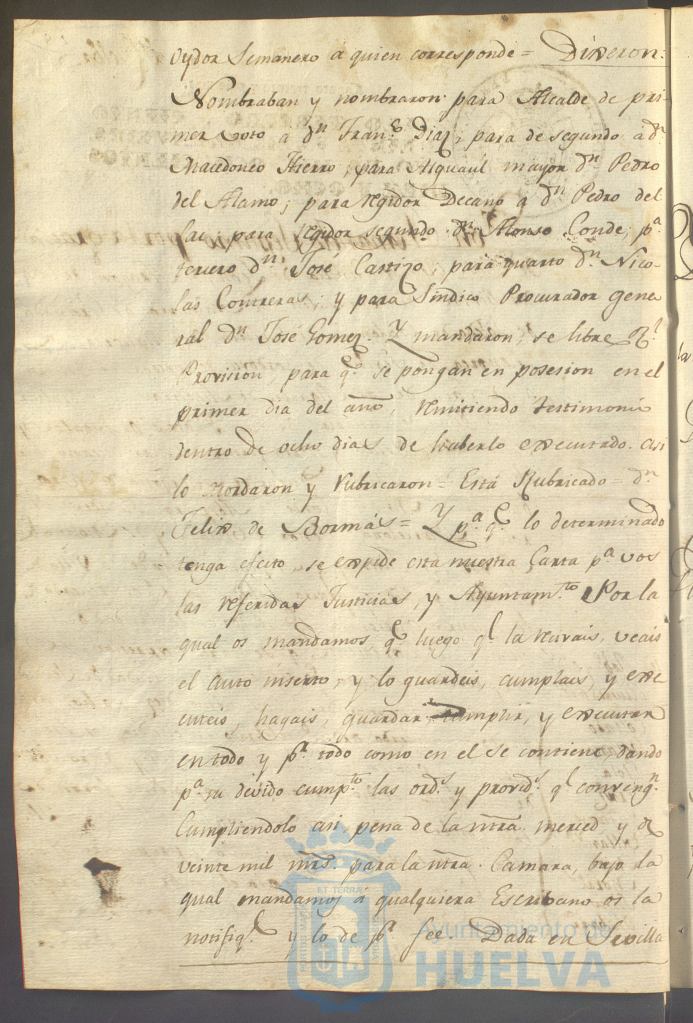 oydor Semanero á quien corresponde = Dixeron:
Nombraban y nombraron para Alcalde de pri-
mer voto a dn. Franco. Diaz; para de segundo a dn.
Macedonio Hierro; para Alguacil mayor dn. Pedro
del Alamo; para regidor Decano a dn. Pedro del
para regidor segundo dn. Alonso Conde; pa.
tercero dn. José Castizo; para quarto dn. Nico-
las Contreras; y para Sindico Procurador gene
ral dn. José Gomez. Y mandaron, se libre Rl.
Provision, para qe. se pongan en posesion en el
primer dia del año, remitiendo testimonio
dentro de ocho dias de haberlo executado. asi
lo acordaron y rubricaron = Está Rubricado = dn.
Felix de Bormás = Y pa. qe. lo determinado
tenga efecto, se expide esta nuestra Carta pa. vos
las referidas Justicias, y Ayuntamto. Por la
qual os mandamos qe. luego qe. la recivais, veais
el auto inserto, y lo guardeis, cumplais, y exe
cuteis, hagais, guardar, cumplir, y executar
en todo y pr. todo como en el se contiene, dando
pa. su devido cumpto. las ords. y provids. qe. convengn.
Cumpliendolo asi, pena de la ntra. merced y de
veinte mil mrs. para la ntra. Camara, bajo la
qual mandamos á qualquiera Escribano os la
notifiqe. y lo de pr. fee. Dada en Sevilla
ET TERRAE
Ayuntamiento de
HUELVA